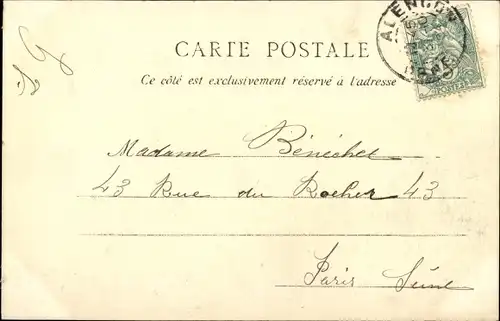 ALENÇON
ORNE
CARTE POSTALE
Ce côté est exclusivement réservé à l'adresse
Madame Bénéchet
43 Rue du Rocher 43
Paris Seine